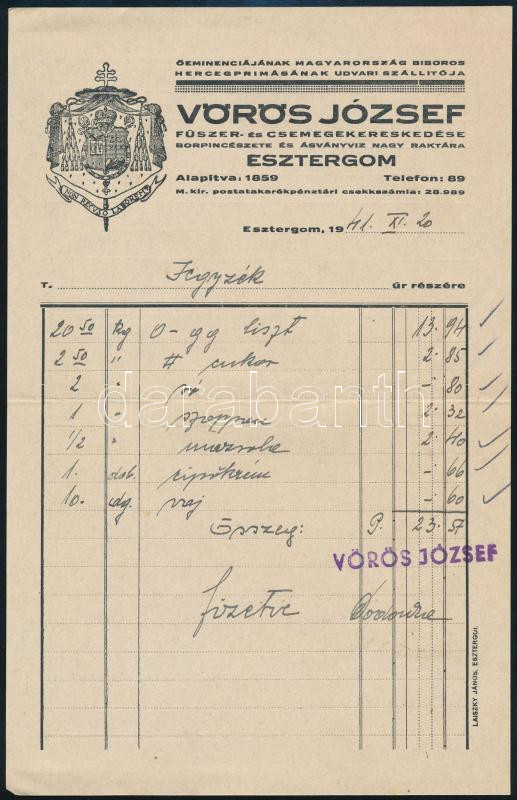 ŐEMINENCIÁJÁNAK MAGYARORSZÁG BIBOROS
HERCEGPRIMÁSÁNAK UDVARI SZÁLLITÓJA
VÖRÖS JÓZSEF
FŰSZER- ÉS CSEMEGEKERESKEDÉSE
BORPINCÉSZETE ÉS ÁSVÁNYVIZ NAGY RAKTÁRA
ESZTERGOM
Alapitva: 1859 Telefon: 89
M. kir. postatakarékpénztári csekkszámla: 28.989
NON RECUSO LABOREM
Esztergom, 1941. XI. 20
T. Jegyzék úr részére
20 50 kg 0-gg liszt 13. 94
2 50 " # cukor 2. 85
2 " só -. 80
1 " szappan 2. 32
1/2 " 2. 40
1. dob. cipőkrém -. 66
10. dg. vaj -. 60
Összeg: P. 23. 57
VÖRÖS JÓZSEF
fizetve
darabanth
LAISZKY JÁNOS, ESZTERGOM.